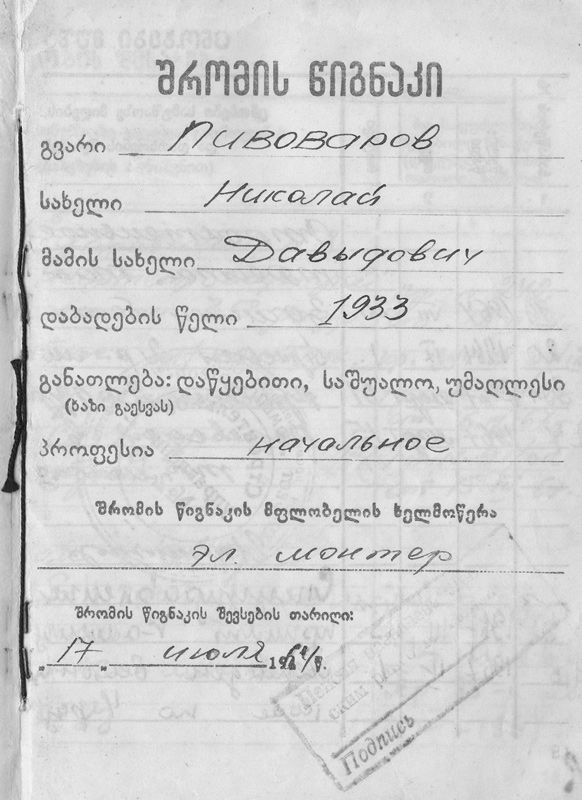 შრომის წიგნაკი
გვარი Пивоваров
სახელი Николай
მამის სახელი Давыдович
დაბადების წელი 1933
განათლება: დაწყებითი, საშუალო, უმაღლესი
(ხაზი გაესვას)
პროფესია начальное
შრომის წიგნაკის მფლობელის ხელმოწერა
эл. монтер
შრომის წიგნაკის შევსების თარიღი:
„17„ июля 19 წ.
Подпись